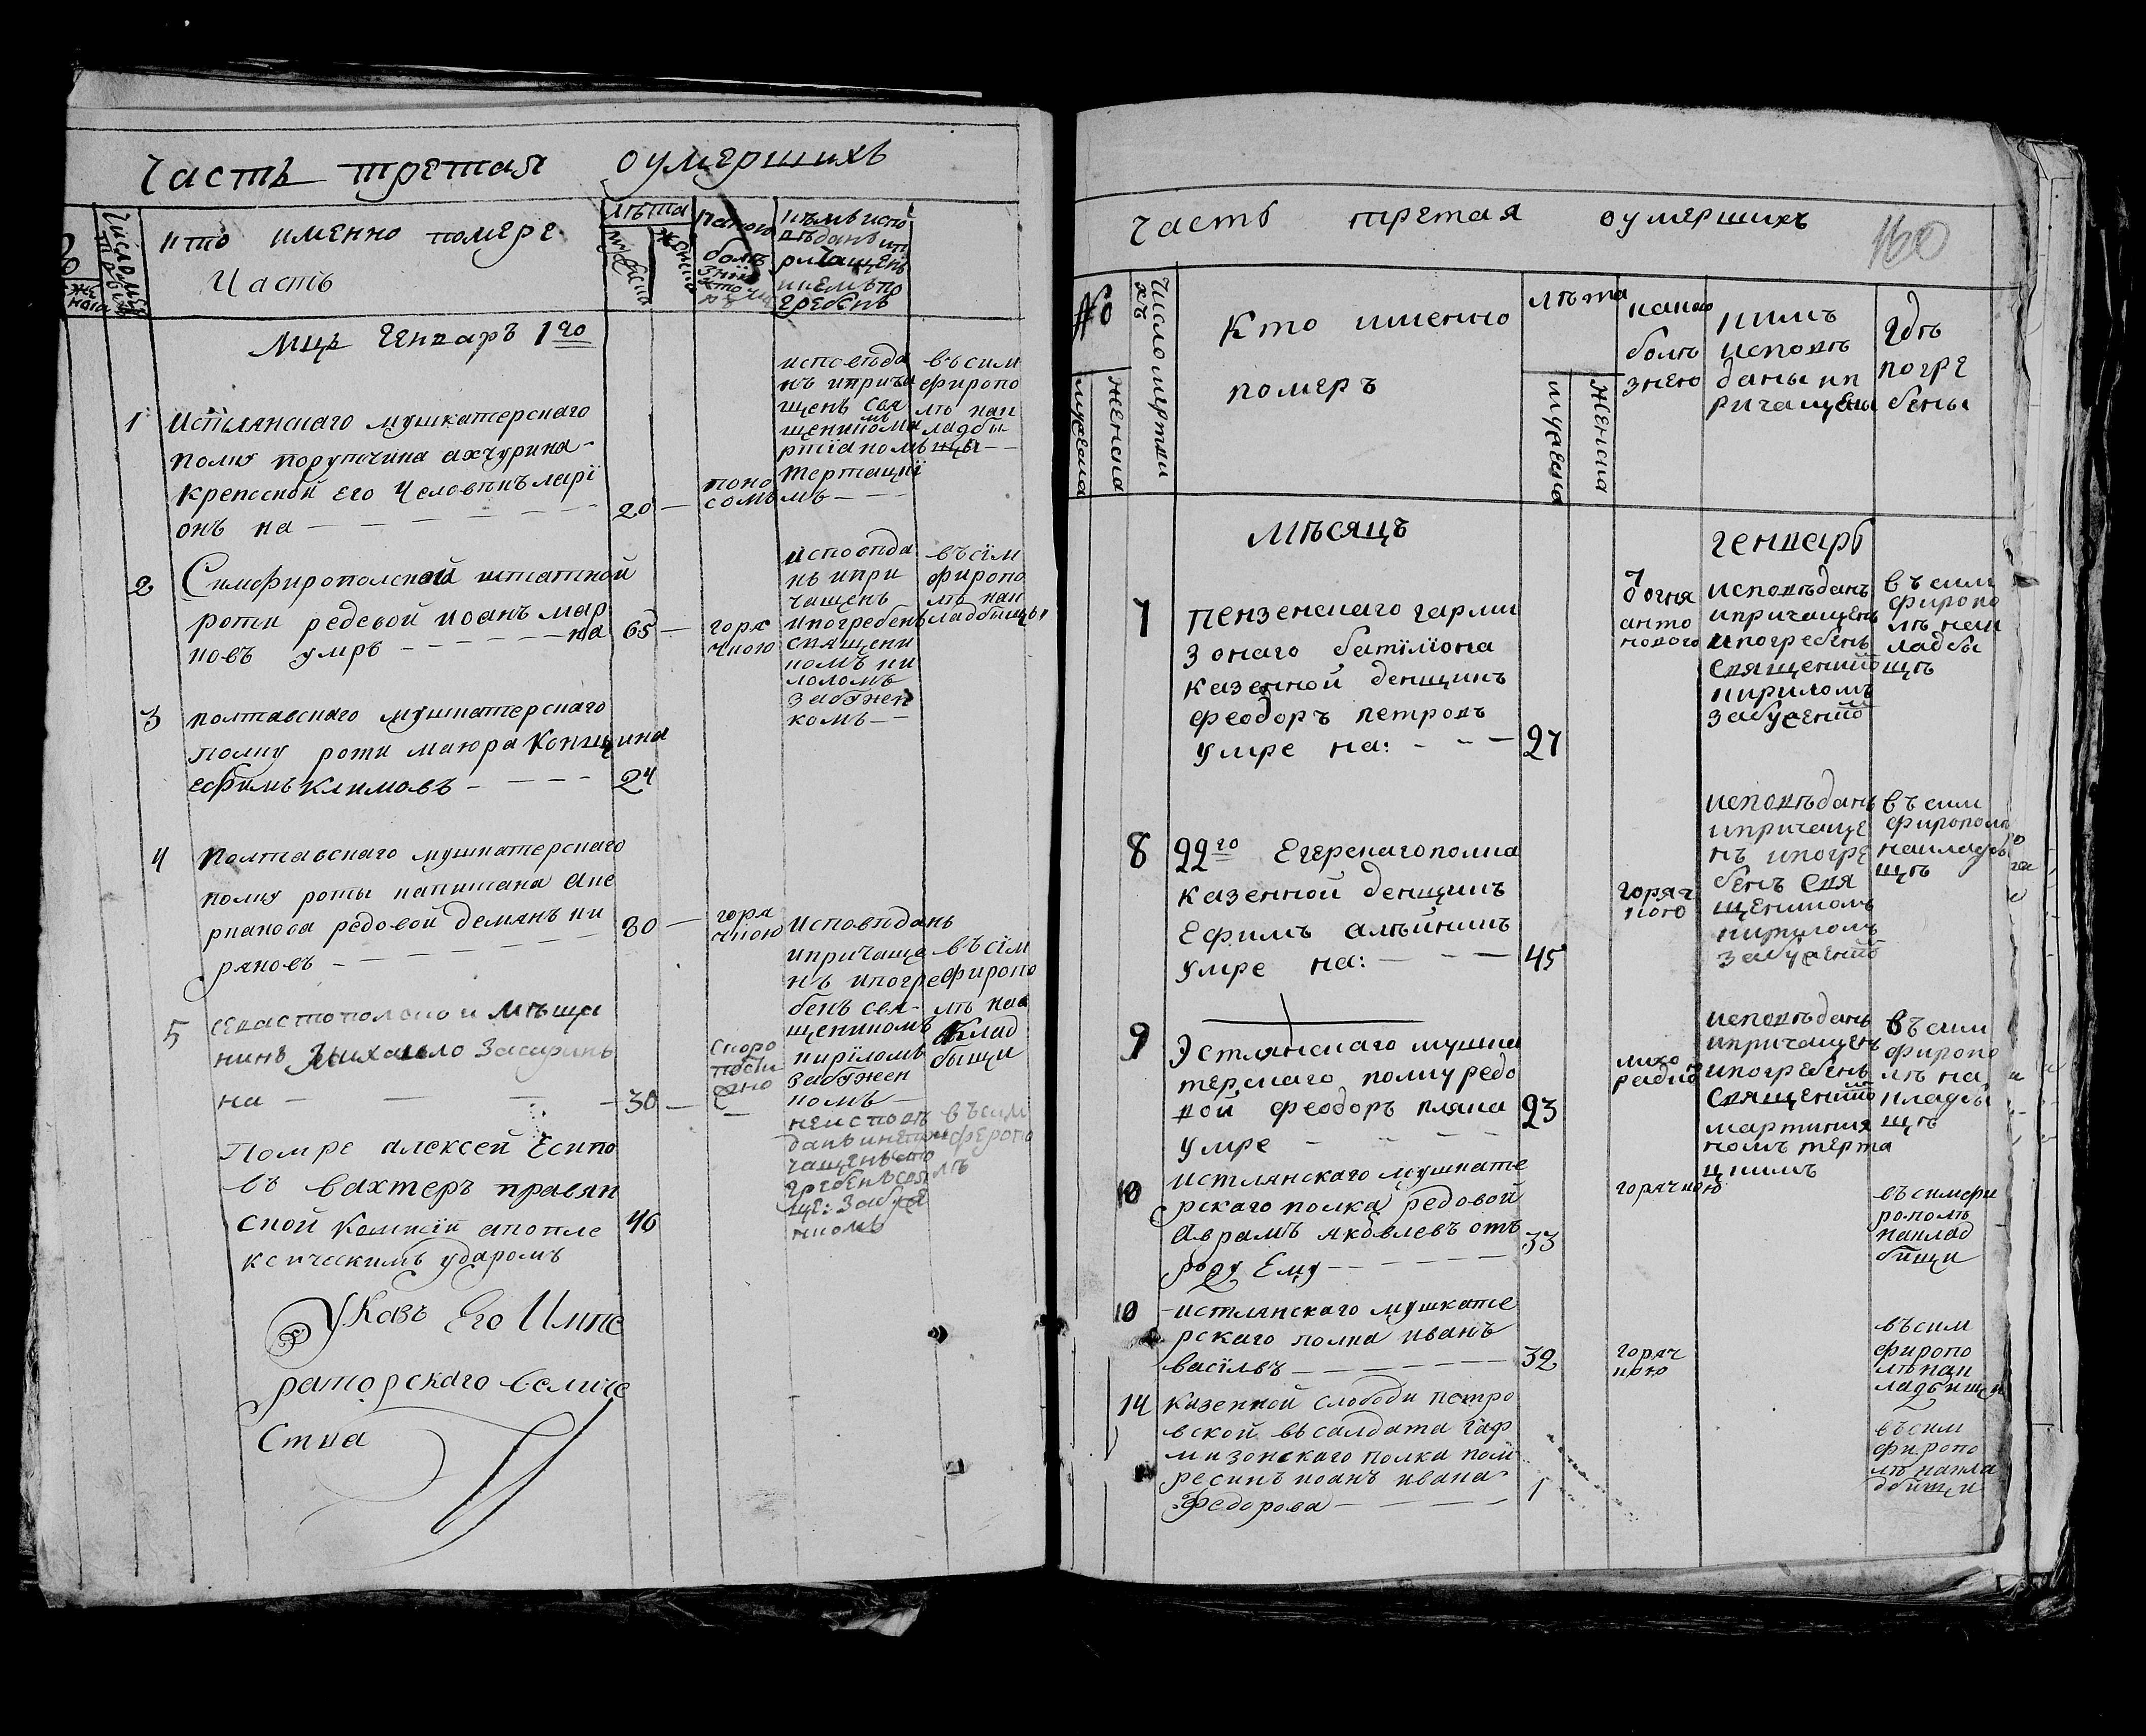 Часть третая оумершихъ
Число мертвихъ
кто именно помере
Часть
лѣта
мужеска
женска
какою
болѣ
знію
кѣмъ испо
вѣданъ ип
ричащенъ
икемъ по
гребенъ
Мцъ Генваръ 1го
1
Истлянскаго мушкатерскаго
полку порутчика ахчурина
крепосной его человѣкъ ларі
онъ на
20
поно
сомъ
исповѣда
нъ иприча
щенъ свя
щеникомъ
въ сим
фиропо
лѣ нак
ладби
щы
2
Симфирополской штатной
роти редевой иоанъ мар
ковъ умръ на
65
горя
чкою
исповѣда
нъ ипри
чащенъ
ипогребенъ
священи
комъ ки
лоломъ
забужен
комъ
въ сім
фиропо
лѣ нак
ладбищы
3
полтавскаго мушкатерскаго
полку роти маюра Копщина
ефимъ климовъ
24
4
полтавскаго мушкатерскаго
полку роты капитана апе
рианоса редовой демянъ ки
ряновъ
30
горя
чкою
исповѣданъ
иприча­ще
нъ ипогре
бенъ свя
щеникомъ
киріломъ
забужен
комъ
въ сім
фиропо
лѣ наа
клад
быщи
5
севастополскои мѣща
нинъ михаило Засаринъ
на
30
скоро
пости
жно
Помре алексей Есипо
въ вахтеръ правян
ской комисіи апопле
ксическимъ ударомъ
46
неисповѣ
данъ инепри
чащенъ ипо
гребенъ свя
ще: забуже
нкомъ
въ сим
феропо
лѣ
Указъ Его Импе
раторскаго величе
ства
часть третая оумершихъ
160
№
мужеска
женска
Число мертви
хъ
Кто именно
померъ
лѣта
мужеска
женска
какою
болѣ
знею
кимъ
исповѣ
даны ип
ричащены
гдѣ
погре
бены
мѣсяцъ генварь
7
пензенскаго гарни
зонаго баталіона
казенной денщикъ
феодоръ петровъ
умре на:
27
огня
анто
новаго
исповѣданъ
ипричащенъ
ипогребенъ
священико
кириломъ
забуженко
въ сим
фиропо
лѣ нак
ладбы
щѣ
8
22го Егерскагополка
казенной денщикъ
Ефимъ алѣйникъ
умре на:
45
горяч
кою
исповѣданъ
ипричаще
нъ ипогре
бенъ свя
щеникомъ
кириломъ
забуженко
въ сим
фирополѣ
накладбы
щѣ
9
Эстлянскаго мушка
терскаго полку редо
вой феодоръ плака
умре
23
лихо
радко
исповѣданъ
ипричащенъ
ипогребенъ
священико
мартиния
номъ терта
цкимъ
въ сим
фиропо
лѣ на
кладбы
щѣ
10
истлянскаго мушкате
рскаго полка редовой
аврамъ яковлевъ отъ
роду ему
33
горячкою
въ симфи
рополѣ
наклад
бищи
10
истлянскаго мушкате
рскаго полка иванъ
васілвъ
32
горяч
кою
въ сим
фиропо
лѣ нак
ладбищи
14
казенной слободи петро
вской въ салдата гар
мизонскаго полка пом
ре синъ иоанъ ивана
Федорова
1
въ сим
фиропо
лѣ накла
дбищи